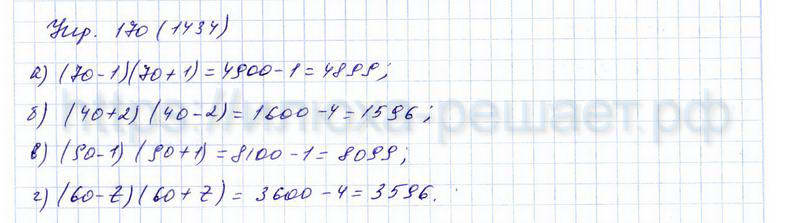 Упр. 170 (1434)
а) (70-1)(70+1) = 4900-1 = 4899;
б) (40+2) (40-2) = 1600-4 = 1596;
в) (90-1) (90+1) = 8100-1 = 8099;
г) (60-2) (60+2) = 3600-4 = 3596.